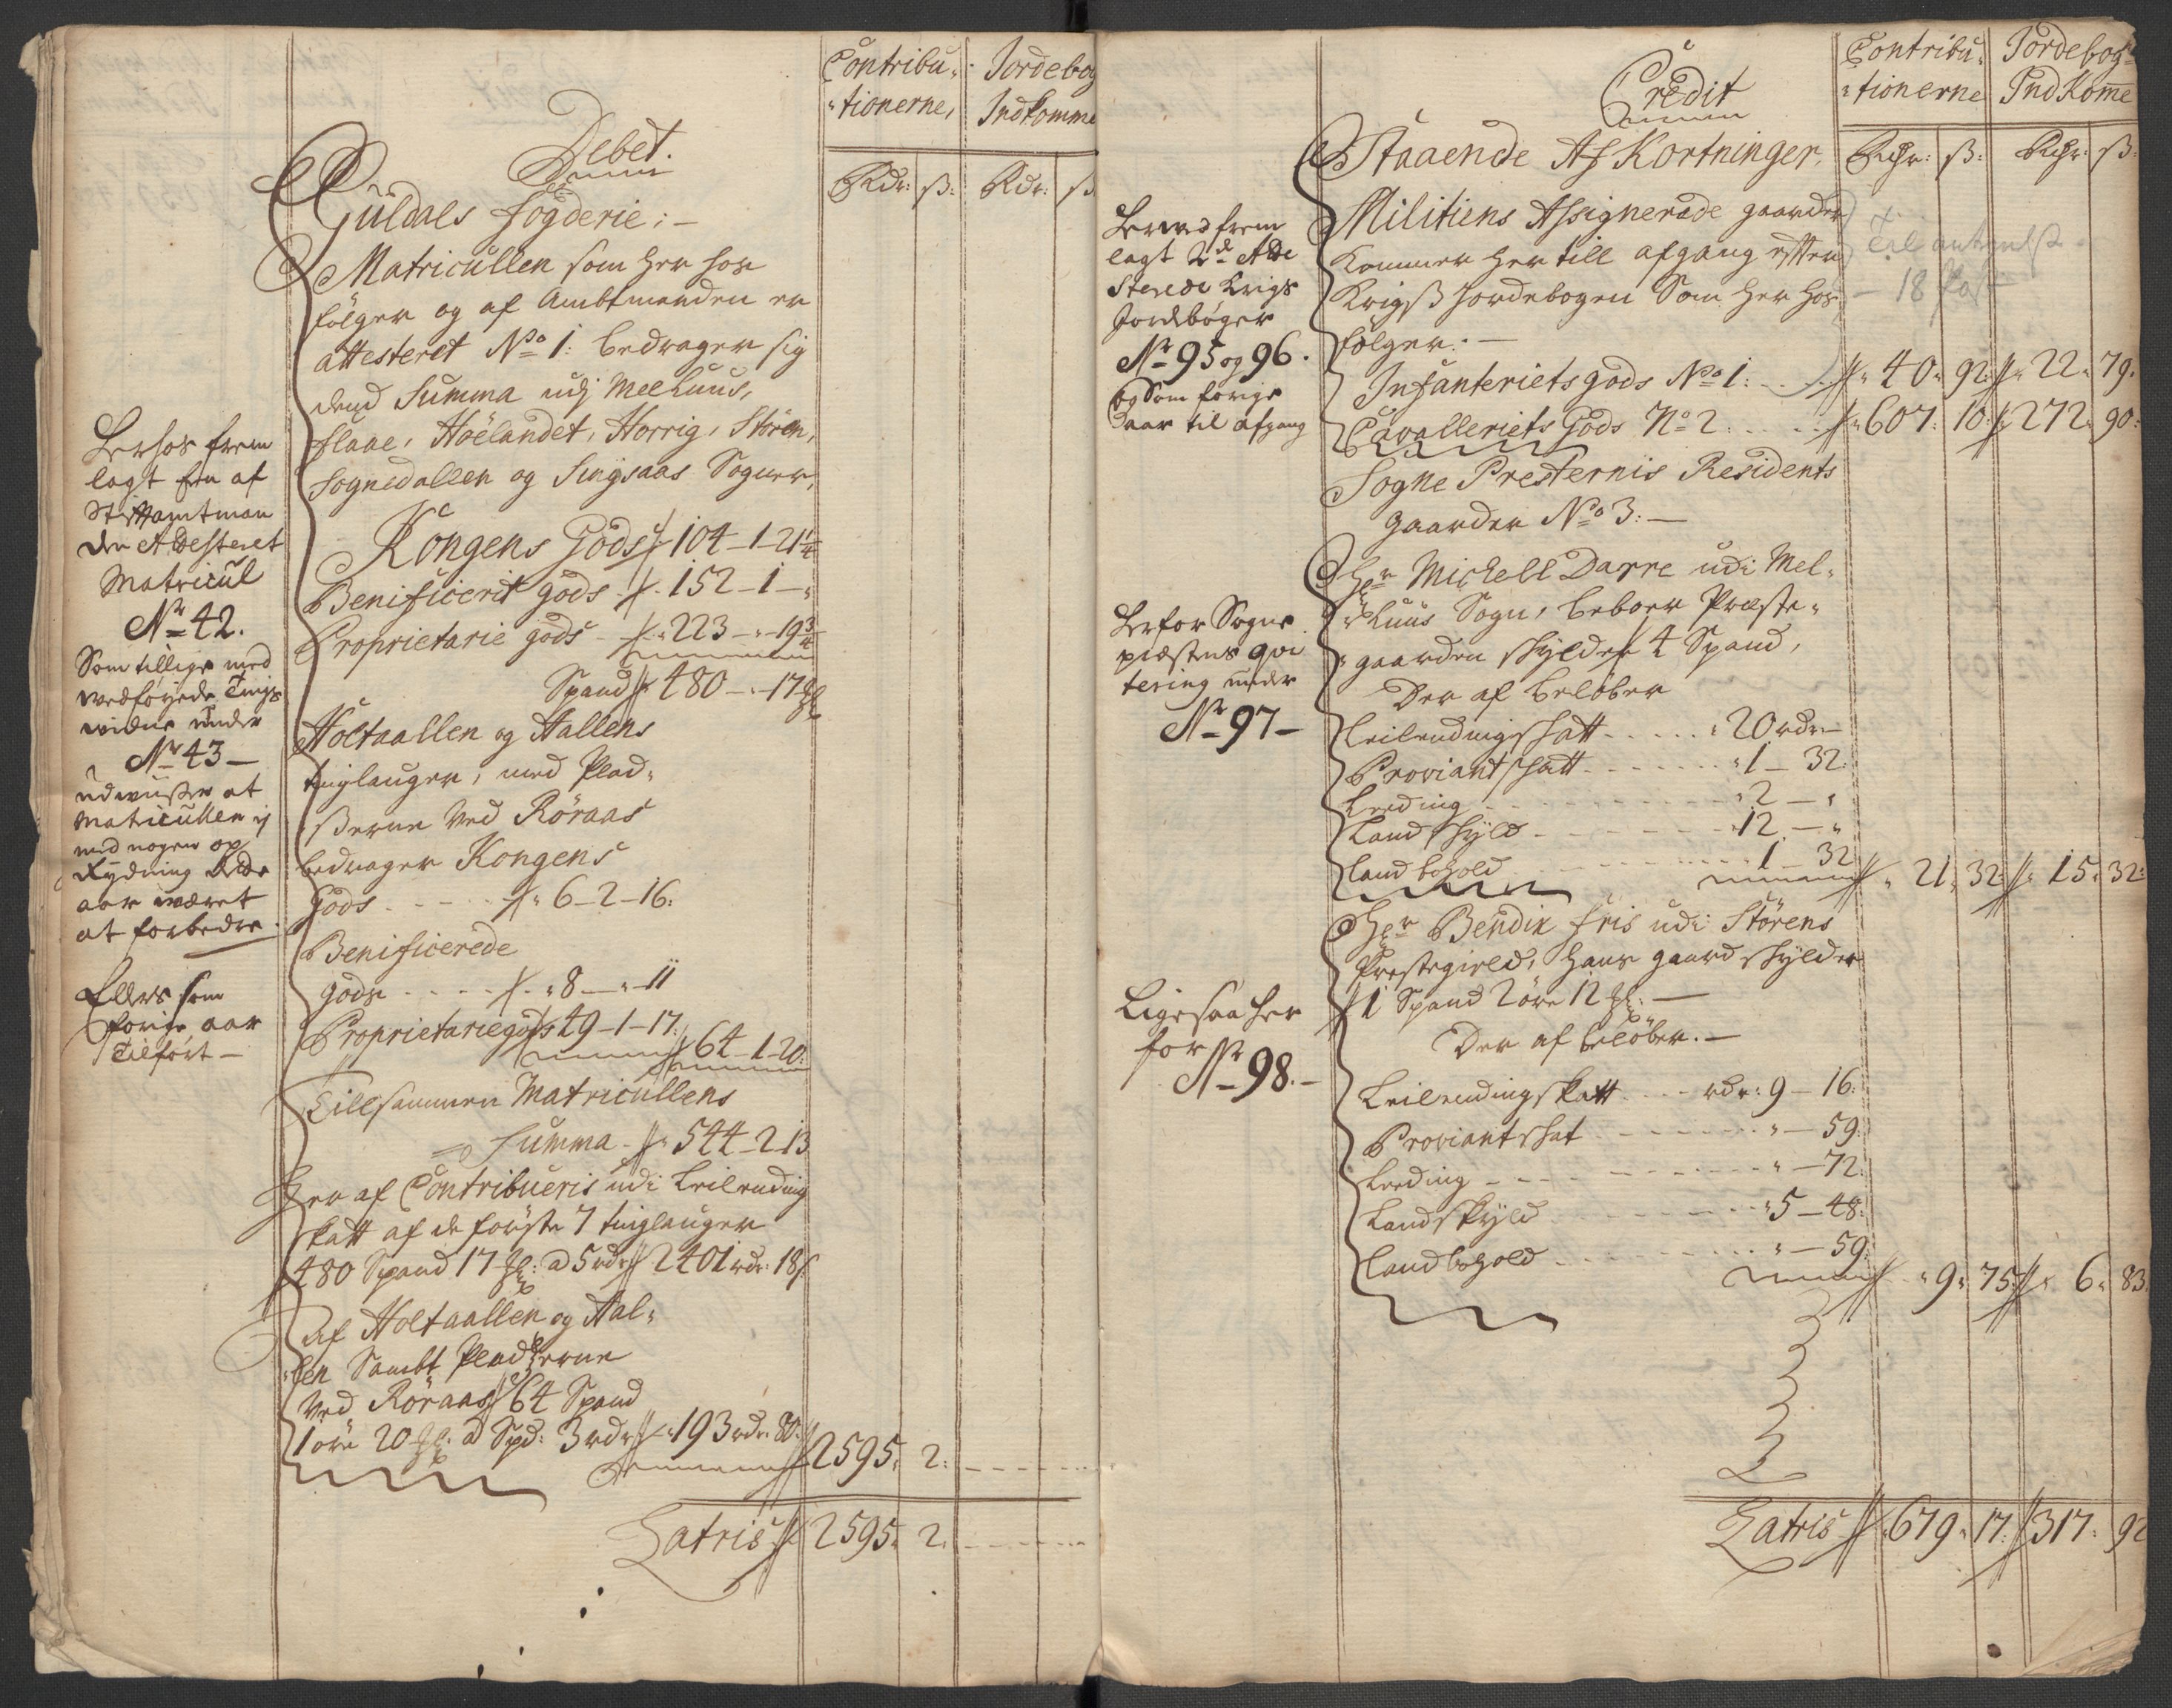 Contribu-
tionerne,
Jordebog
Indkomme
Rdr: ß: Rdr: ß
Debet.
Guldals fogderie: —
Matricullen som her hos
følger og af Ambtmanden er
attesteret No 1: bedrager sig
dend Summa udj Meelhuus,
flaae, Hoëlandet, Horrig, Stören,
Sognedallen og Singsaas Sogner,
Kongens Gods 104 - 1 - 21 1/4
Benificerit gods 152 - 1 -
Proprietarie gods 223 - " - 19 3/4
Spand 480 - " - 17
Holtaallen og Aallens
tinglauger, med Plad-
serne ved Röraas
bedrager Kongens
Gods 6 - 2 - 16:
Benificerede
gods 8 - " - 11
Proprietarie gods 49 - 1 - 17: 64 - 1 - 20:
Tillsammen Matricullens
Summa 544 - 2 - 13
Her af Contribueris udi Leilending
skatt af de förste 7 tinglauger
480 Spand 17 a 5 rdr 2401 rdr: 18 ß
Af Holtaallen og Aal-
len Sambt Pladserne
ved Röraas 64 Spand
1 öre 20 a Spd: 3 rdr 193 rdr: 80: 2595 2:
Latris 2595 2:
Her hos frem
lagt En af
Stiftamtman
den Attesteret
Matricul
No 42.
Som tillige med
vedföyede Tings
vidne under
No 43 —
udviser at
Matricullen ej
med nogen op
Rydning dette
aar været
at forbedre.
Ellers som
forige aar
Tilfört —
Contribu-
tionerne
Jordebog
Indkome
Rdr: ß: Rdr: ß:
Credit
Staaende Afkortninger,
Militiens Assignerede gaarder
kommer her till afgang efter
Krigs Jordebogen Som her hos
følger: —
Infanteriets gods No 1: 40 92 22 79.
Cavalleriets Gods No 2 607 10 272 90:
Sogne Presternis Residents
gaarder No 3: —
Hr Michell Darre udi Mel-
huus Sogn, beboer Præste-
gaarden skylder 4 Spand,
Der af beløber
Leilendingsskatt 20 rdr —
Proviantskatt 1 - 32:
Leeding 2 - "
Landskyld 12 - "
landbohold 1 - 32 21 32 15 32:
Hr Bendix friis udi Störens
Prestegield, hans gaard skylder
1 Spand 2 öre 12 —
Der af beløber. —
Leilendingskatt rdr: 9 - 16:
Proviantskat " - 59:
Leeding " - 72:
Landskyld 5 - 48:
landbohold " - 59: 9 75 6 83
Latris 679 17: 317: 92
Herved frem
lagt 2de Atte
sterede Krigs
Jordebøger
No 95 og 96.
og Som forige
aar til afgang
Herfor Sogne
præstens qvi
tering under
No 97 —
Ligesaa her
for No 98. —